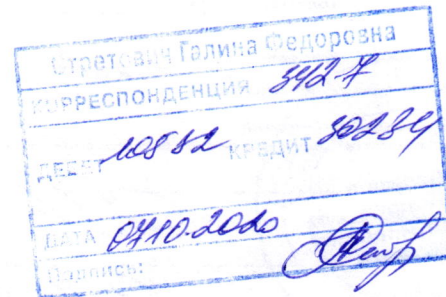 Стретович Галина Федоровна
КОРРЕСПОНДЕНЦИЯ 5427
ДЕБЕТ 10532 КРЕДИТ 30234
ДАТА 07.10.2020
Подпись: